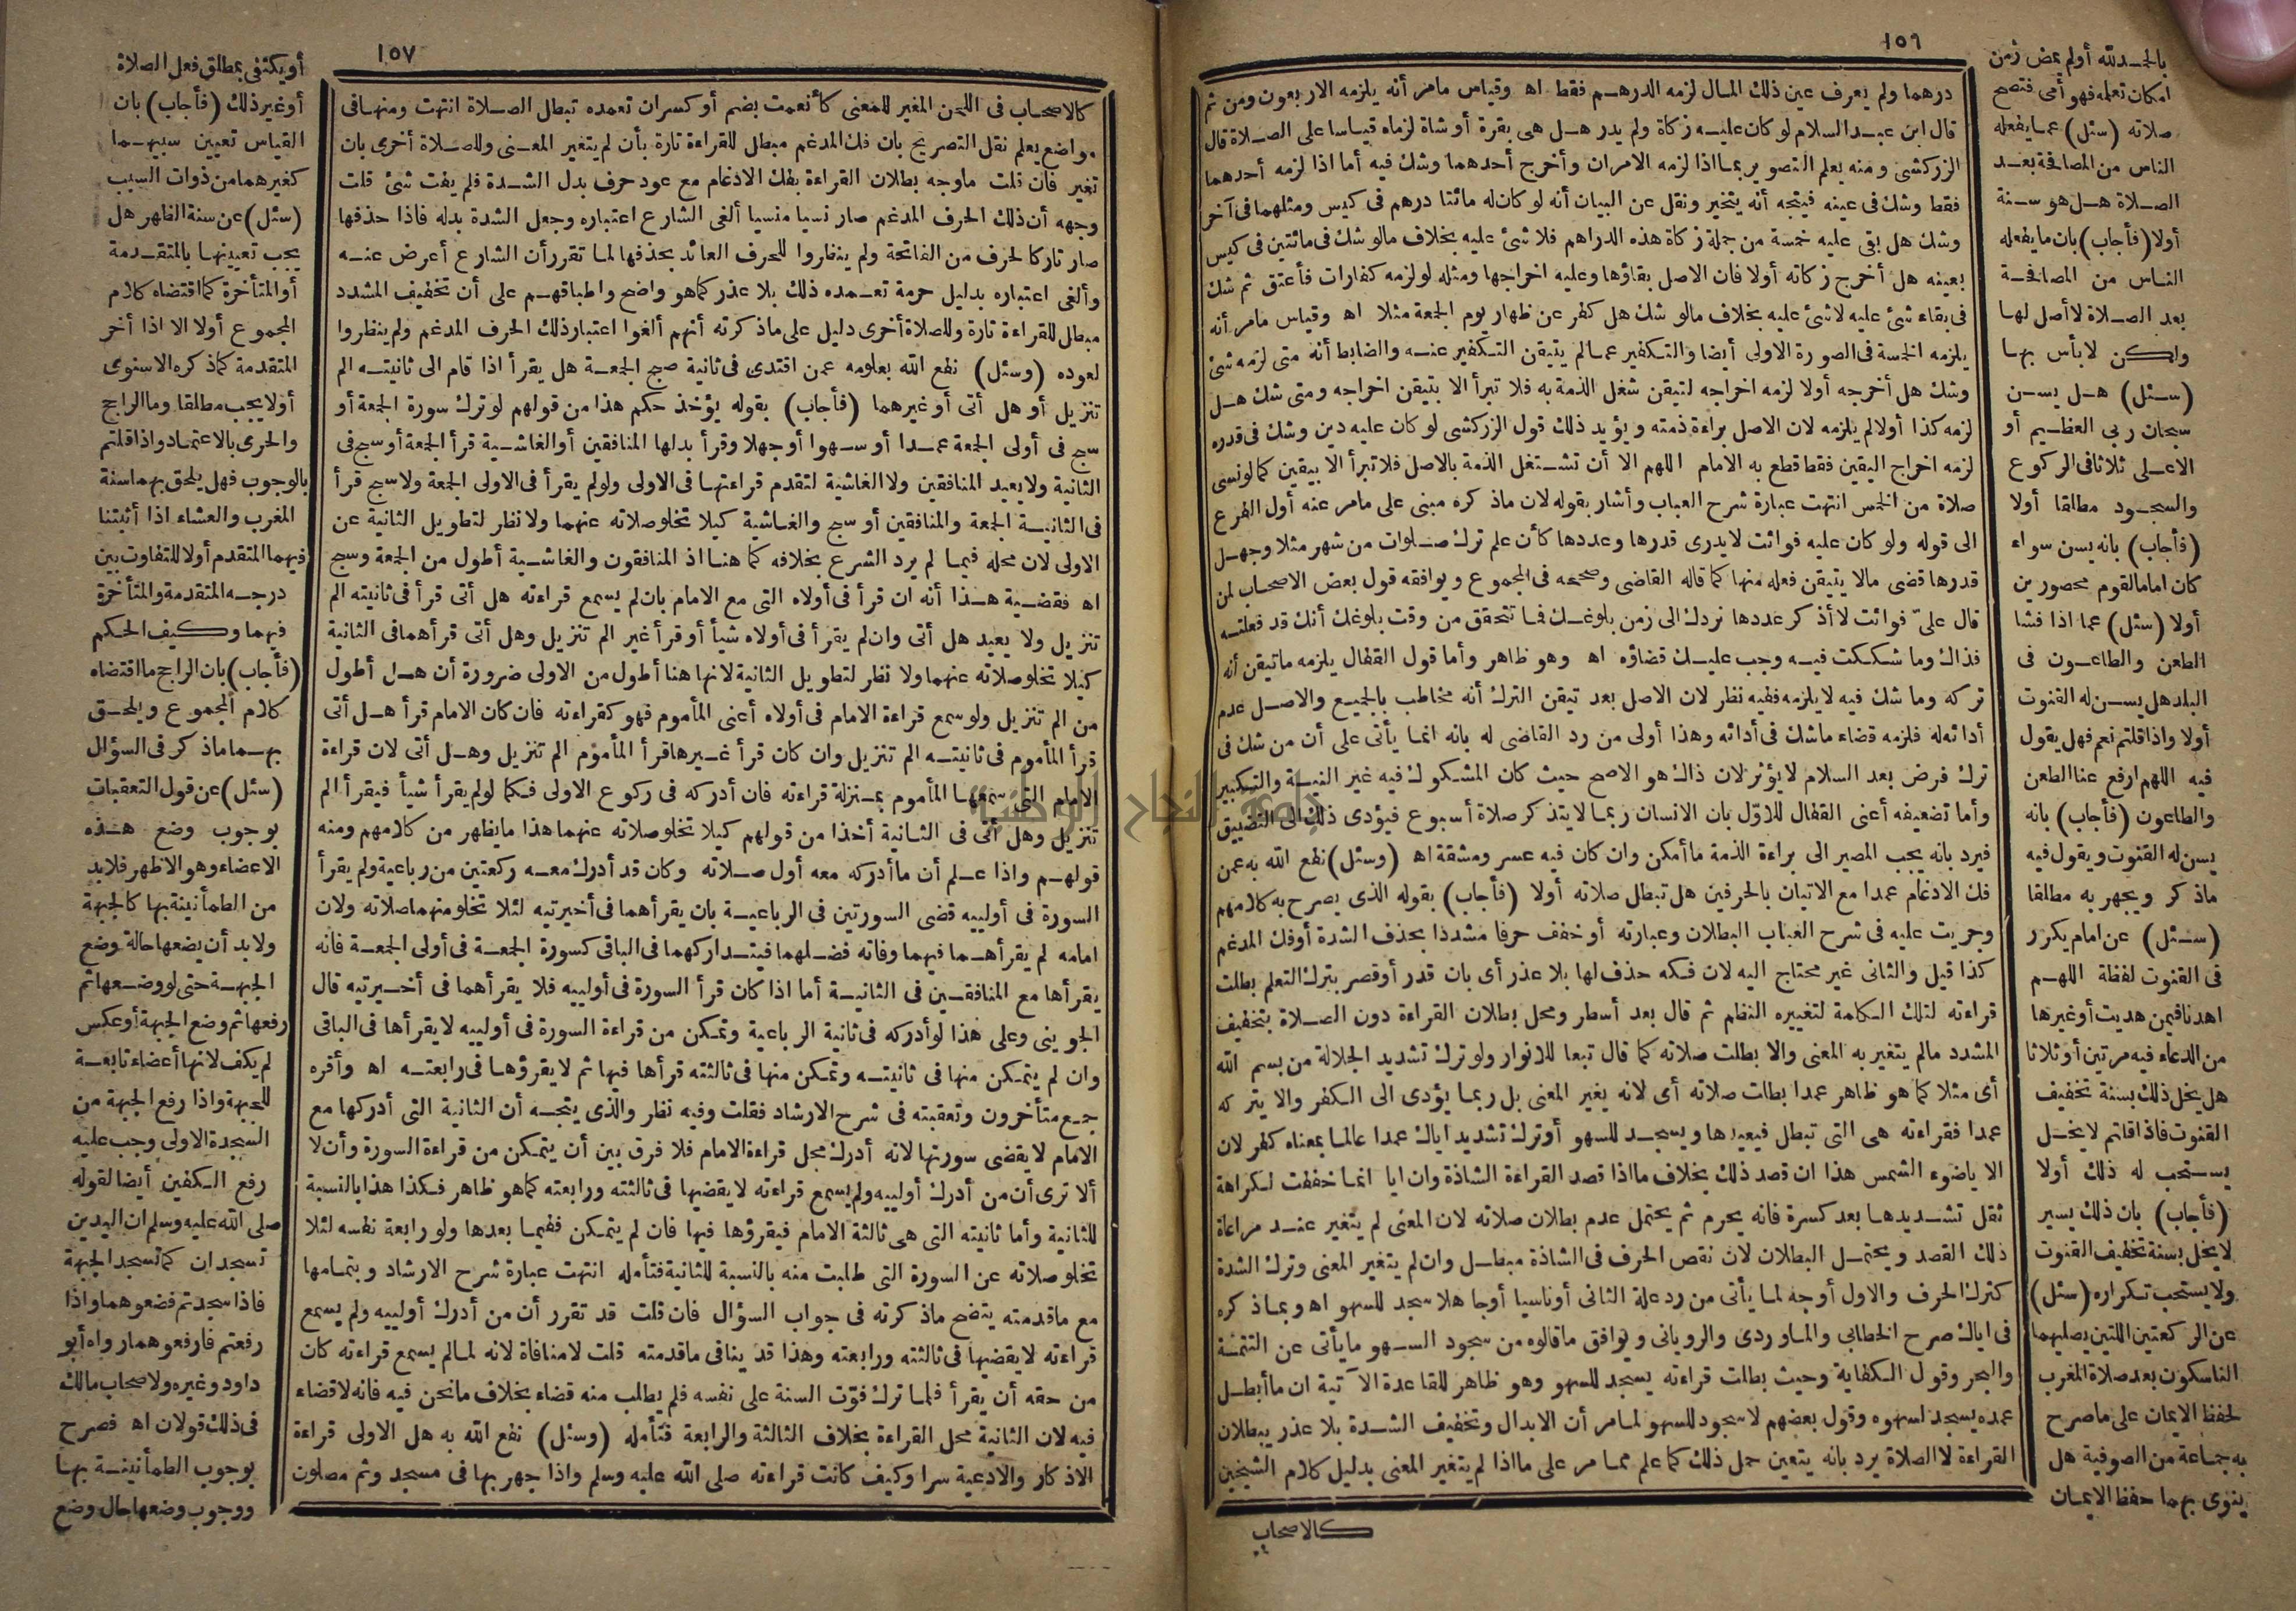 ١٥٦
درهما ولم يعرف عين ذلك المال لزمه الدرهم فقط اه وقياس مامر أنه يلزمه الاربعون ومن ثم
قال ابن عبد السلام لو كان عليه زكاة ولم يدر هل هى بقرة أو شاة لزماه قياسا على الصلاة قال
الزركشى ومنه يعلم التصوير بما اذا لزمه الامران وأخرج أحدهما وشك فيه أما اذا لزمه أحدهما
فقط وشك فى عينه فيتجه أنه يتخير ونقل عن البيان أنه لو كان له مائتا درهم فى كيس ومثلهما فى آخر
وشك هل بقى عليه خمسة من جملة زكاة هذه الدراهم فلا شئ عليه بخلاف مالو شك فى مائتين فى كيس
بعينه هل أخرج زكاته أولا فان الاصل بقاؤها وعليه اخراجها ومثله لو لزمه كفارات فأعتق ثم شك
فى بقاء شئ عليه لاشئ عليه بخلاف مالو شك هل كفر عن ظهار يوم الجمعة مثلا اه وقياس مامر أنه
يلزمه الخمسة فى الصورة الاولى أيضا والتكفير عمالم يتيقن التكفير عنه والضابط أنه متى لزمه شئ
وشك هل أخرجه أولا لزمه اخراجه لتيقن شغل الذمة به فلا تبرأ الا بتيقن اخراجه ومتى شك هل
لزمه كذا أولا لم يلزمه لان الاصل براءة ذمته ويؤيد ذلك قول الزركشى لو كان عليه دين وشك فى قدره
لزمه اخراج اليقين فقط قطع به الامام اللهم الا أن تشتغل الذمة بالاصل فلا تبرأ الا بيقين كما لونسى
صلاة من الخمس انتهت عبارة شرح العباب وأشار بقوله لان ماذ كره مبنى على مامر عنه أول الفرع
الى قوله ولو كان عليه فوائت لايدرى قدرها وعددها كأن علم ترك صلوات من شهر مثلا وجهل
قدرها قضى مالا يتيقن فعله منها كما قاله القاضى وصححه فى المجموع ويوافقه قول بعض الاصحاب لمن
قال علىّ فوائت لا أذ كر عددها نردك الى زمن بلوغك فما تتحقق من وقت بلوغك أنك قد فعلته
فذاك وما شككت فيه وجب عليك قضاؤه اه وهو ظاهر وأما قول القفال يلزمه ماتيقن أنه
تركه وما شك فيه لا يلزمه ففيه نظر لان الاصل بعد تيقن الترك أنه مخاطب بالجميع والاصل عدم
أدائه له فلزمه قضاء ماشك فى أدائه وهذا أولى من رد القاضى له بانه انما يأتى على أن من شك فى
ترك فرض بعد السلام لا يؤثر لان ذاك هو الاصح حيث كان المشكوك فيه غير النية والتكبير
وأما تضعيفه أعنى القفال للاوّل بان الانسان ربما لا يتذ كر صلاة أسبوع فيؤدى ذلك الى التضييق
فيرد بانه يجب المصير الى براءة الذمة ما أمكن وان كان فيه عسر ومشقة اه (وسئل) نفع الله به عمن
فك الادغام عمدا مع الاتيان بالحرفين هل تبطل صلاته أولا (فأجاب) بقوله الذى يصرح به كلامهم
وجريت عليه فى شرح العباب البطلان وعبارته أو خفف حرفا مشددا بحذف الشدة أو فك المدغم
كذا قيل والثانى غير محتاج اليه لان فكه حذف لها بلا عذر أى بان قدر أو قصر بترك التعلم بطلت
قراءته لتلك الكلمة لتغييره النظم ثم قال بعد أسطر ومحل بطلان القراءة دون الصلاة بتخفيف
المشدد مالم يتغير به المعنى والا بطلت صلاته كما قال تبعا للانوار ولو ترك تشديد الجلالة من بسم الله
أى مثلا كما هو ظاهر عمدا بطلت صلاته أى لانه يغير المعنى بل ربما يؤدى الى الكفر والا يتركه
عمدا فقراءته هى التى تبطل فيعيدها ويسجد للسهو أو ترك تشديد اياك عمدا عالما بمعناه كفر لان
الا ياضوء الشمس هذا ان قصد ذلك بخلاف ما اذا قصد القراءة الشاذة وان ايا انما خففت لكراهة
ثقل تشديدها بعد كسرة فانه يحرم ثم يحتمل عدم بطلان صلاته لان المعنى لم يتغير عند مراعاة
ذلك القصد ويحتمل البطلان لان نقص الحرف فى الشاذة مبطل وان لم يتغير المعنى وترك الشدة
كترك الحرف والاول أوجه لما يأتى من رد علة الثانى أو ناسيا أو جاهلا سجد للسهو اه وبما ذ كره
فى اياك صرح الخطابى والماوردى والرويانى ويوافق ماقالوه من سجود السهو مايأتى عن التتمة
والبحر وقول الكفاية وحيث بطلت قراءته يسجد للسهو وهو ظاهر للقاعدة الآتية ان ما أبطل
عمده يسجد لسهوه وقول بعضهم لا سجود للسهو لمامر أن الابدال وتخفيف الشدة بلا عذر يبطلان
القراءة لا الصلاة يرد بانه يتعين حمل ذلك كما علم مما مر على ما اذا لم يتغير المعنى بدليل كلام الشيخين
كالاصحاب
بالحمد لله أولم يمض زمن
امكان تعلمه فهو أمى فتصح
صلاته (سئل) عما يفعله
الناس من المصافحة بعد
الصلاة هل هو سنة
أولا (فأجاب) بان ما يفعله
الناس من المصافحة
بعد الصلاة لا أصل لها
ولكن لا بأس بها
(سئل) هل يسن
سبحان ربى العظيم أو
الاعلى ثلاثا فى الركوع
والسجود مطلقا أولا
(فأجاب) بانه يسن سواء
كان اماما لقوم محصورين
أولا (سئل) عما اذا فشا
الطعن والطاعون فى
البلد هل يسن له القنوت
أولا واذا قلتم نعم فهل يقول
فيه اللهم ارفع عنا الطعن
والطاعون (فأجاب) بانه
يسن له القنوت ويقول فيه
ماذ كر ويجهر به مطلقا
(سئل) عن امام يكرر
فى القنوت لفظة اللهم
اهدنا فيمن هديت أو غيرها
من الدعاء فيه مرتين أو ثلاثا
هل يخل ذلك بسنة تخفيف
القنوت فاذا قلتم لا يخل
يستحب له ذلك أولا
(فأجاب) بان ذلك يسير
لا يخل بسنة تخفيف القنوت
ولا يستحب تكراره (سئل)
عن الركعتين اللتين يصليهما
الناسكون بعد صلاة المغرب
لحفظ الايمان على ما صرح
به جماعة من الصوفية هل
ينوى بهما حفظ الايمان
١٥٧
كالاصحاب فى اللحن المغير للمعنى كأنعمت بضم أو كسران تعمده تبطل الصلاة انتهت ومنها فى
مواضع يعلم نقل التصريح بان فك المدغم مبطل للقراءة تارة بأن لم يتغير المعنى وللصلاة أخرى بان
تغير فان قلت ماوجه بطلان القراءة بفك الادغام مع عود حرف بدل الشدة فلم يفت شئ قلت
وجهه أن ذلك الحرف المدغم صار نسيا منسيا ألغى الشارع اعتباره وجعل الشدة بدله فاذا حذفها
صار تاركا لحرف من الفاتحة ولم ينظروا للحرف العائد بحذفها لما تقرر أن الشارع أعرض عنه
وألغى اعتباره بدليل حرمة تعمده ذلك بلا عذر كما هو واضح واطباقهم على أن تخفيف المشدد
مبطل للقراءة تارة وللصلاة أخرى دليل على ماذكرته أنهم ألغوا اعتبار ذلك الحرف المدغم ولم ينظروا
لعوده (وسئل) نفع الله بعلومه عمن اقتدى فى ثانية صبح الجمعة هل يقرأ اذا قام الى ثانيته الم
تنزيل أو هل أتى أو غيرهما (فأجاب) بقوله يؤخذ حكم هذا من قولهم لو ترك سورة الجمعة أو
سبح فى أولى الجمعة عمدا أو سهوا أو جهلا وقرأ بدلها المنافقين أو الغاشية قرأ الجمعة أو سبح فى
الثانية ولا يعيد المنافقين ولا الغاشية لتقدم قراءتها فى الاولى ولو لم يقرأ فى الاولى الجمعة ولا سبح قرأ
فى الثانية الجمعة والمنافقين أو سبح والغاشية كيلا تخلو صلاته عنهما ولا نظر لتطويل الثانية عن
الاولى لان محله فيما لم يرد الشرع بخلافه كما هنا اذ المنافقون والغاشية أطول من الجمعة وسبح
اه فقضية هذا أنه ان قرأ فى أولاه التى مع الامام بان لم يسمع قراءته هل أتى قرأ فى ثانيته الم
تنزيل ولا يعيد هل أتى وان لم يقرأ فى أولاه شيأ أو قرأ غير الم تنزيل وهل أتى قرأهما فى الثانية
كيلا تخلو صلاته عنهما ولا نظر لتطويل الثانية لانها هنا أطول من الاولى ضرورة أن هل أطول
من الم تنزيل ولو سمع قراءة الامام فى أولاه أعنى المأموم فهو كقراءته فان كان الامام قرأ هل أتى
قرأ المأموم فى ثانيته الم تنزيل وان كان قرأ غيرها قرأ المأموم الم تنزيل وهل أتى لان قراءة
الامام التى سمعها المأموم بمنزلة قراءته فان أدركه فى ركوع الاولى فكما لو لم يقرأ شيأ فيقرأ الم
تنزيل وهل أتى فى الثانية أخذا من قولهم كيلا تخلو صلاته عنهما هذا مايظهر من كلامهم ومنه
قولهم واذا علم أن ما أدركه معه أول صلاته وكان قد أدرك معه ركعتين من رباعية ولم يقرأ
السورة فى أولييه قضى السورتين فى الرباعية بان يقرأهما فى أخيرتيه لئلا تخلو منهما صلاته ولان
امامه لم يقرأهما فيهما وفاته فضلهما فيتداركهما فى الباقى كسورة الجمعة فى أولى الجمعة فانه
يقرأها مع المنافقين فى الثانية أما اذا كان قرأ السورة فى أولييه فلا يقرأهما فى أخيرتيه قال
الجوينى وعلى هذا لو أدركه فى ثانية الرباعية وتمكن من قراءة السورة فى أولييه لا يقرأها فى الباقى
وان لم يتمكن منها فى ثانيته وتمكن منها فى ثالثته قرأها فيها ثم لا يقرؤها فى رابعته اه وأقره
جمع متأخرون وتعقبته فى شرح الارشاد فقلت وفيه نظر والذى يتجه أن الثانية التى أدركها مع
الامام لا يقضى سورتها لانه أدرك محل قراءة الامام فلا فرق بين أن يتمكن من قراءة السورة وأن لا
ألا ترى أن من أدرك أولييه ولم يسمع قراءته لا يقضيها فى ثالثته ورابعته كما هو ظاهر فكذا هذا بالنسبة
للثانية وأما ثانيته التى هى ثالثة الامام فيقرؤها فيها فان لم يتمكن ففيما بعدها ولو رابعة نفسه لئلا
تخلو صلاته عن السورة التى طلبت منه بالنسبة للثانية فتأمله انتهت عبارة شرح الارشاد وبتمامها
مع ماقدمته يتضح ماذ كرته فى جواب السؤال فان قلت قد تقرر أن من أدرك أولييه ولم يسمع
قراءته لا يقضيها فى ثالثته ورابعته وهذا قد ينافى ماقدمته قلت لا منافاة لانه لما لم يسمع قراءته كان
من حقه أن يقرأ فلما ترك فوّت السنة على نفسه فلم يطلب منه قضاء بخلاف مانحن فيه فانه لا قضاء
فيه لان الثانية محل القراءة بخلاف الثالثة والرابعة فتأمله (وسئل) نفع الله به هل الاولى قراءة
الاذ كار والادعية سرا وكيف كانت قراءته صلى الله عليه وسلم واذا جهر بها فى مسجد وثم مصلون
أو يكتفى بمطلق فعل الصلاة
أو غير ذلك (فأجاب) بان
القياس تعيين سببهما
كغيرهما من ذوات السبب
(سئل) عن سنة الظهر هل
يجب تعيينها بالمتقدمة
أو المتأخرة كما اقتضاه كلام
المجموع أولا الا اذا أخر
المتقدمة كما ذكره الاسنوى
أولا يجب مطلقا وما الراجح
والحرى بالاعتماد واذا قلتم
بالوجوب فهل يلحق بهما سنة
المغرب والعشاء اذا أثبتنا
فيهما المتقدم أولا للتفاوت بين
درجة المتقدمة والمتأخرة
فيهما وكيف الحكم
(فأجاب) بان الراجح ما اقتضاه
كلام المجموع ويلحق
بهما ماذ كر فى السؤال
(سئل) عن قول التعقبات
بوجوب وضع هذه
الاعضاء وهو الاظهر فلا بد
من الطمأنينة بها كالجبهة
ولا بد أن يضعها حالة وضع
الجبهة حتى لو وضعها ثم
رفعها ثم وضع الجبهة أو عكس
لم يكف لانها أعضاء تابعة
للجبهة واذا رفع الجبهة من
السجدة الاولى وجب عليه
رفع الكفين أيضا لقوله
صلى الله عليه وسلم ان اليدين
تسجدان كما تسجد الجبهة
فاذا سجدتم فضعوهما واذا
رفعتم فارفعوهما رواه أبو
داود وغيره ولاصحاب مالك
فى ذلك قولان اه فصرح
بوجوب الطمأنينة بها
ووجوب وضعها حال وضع